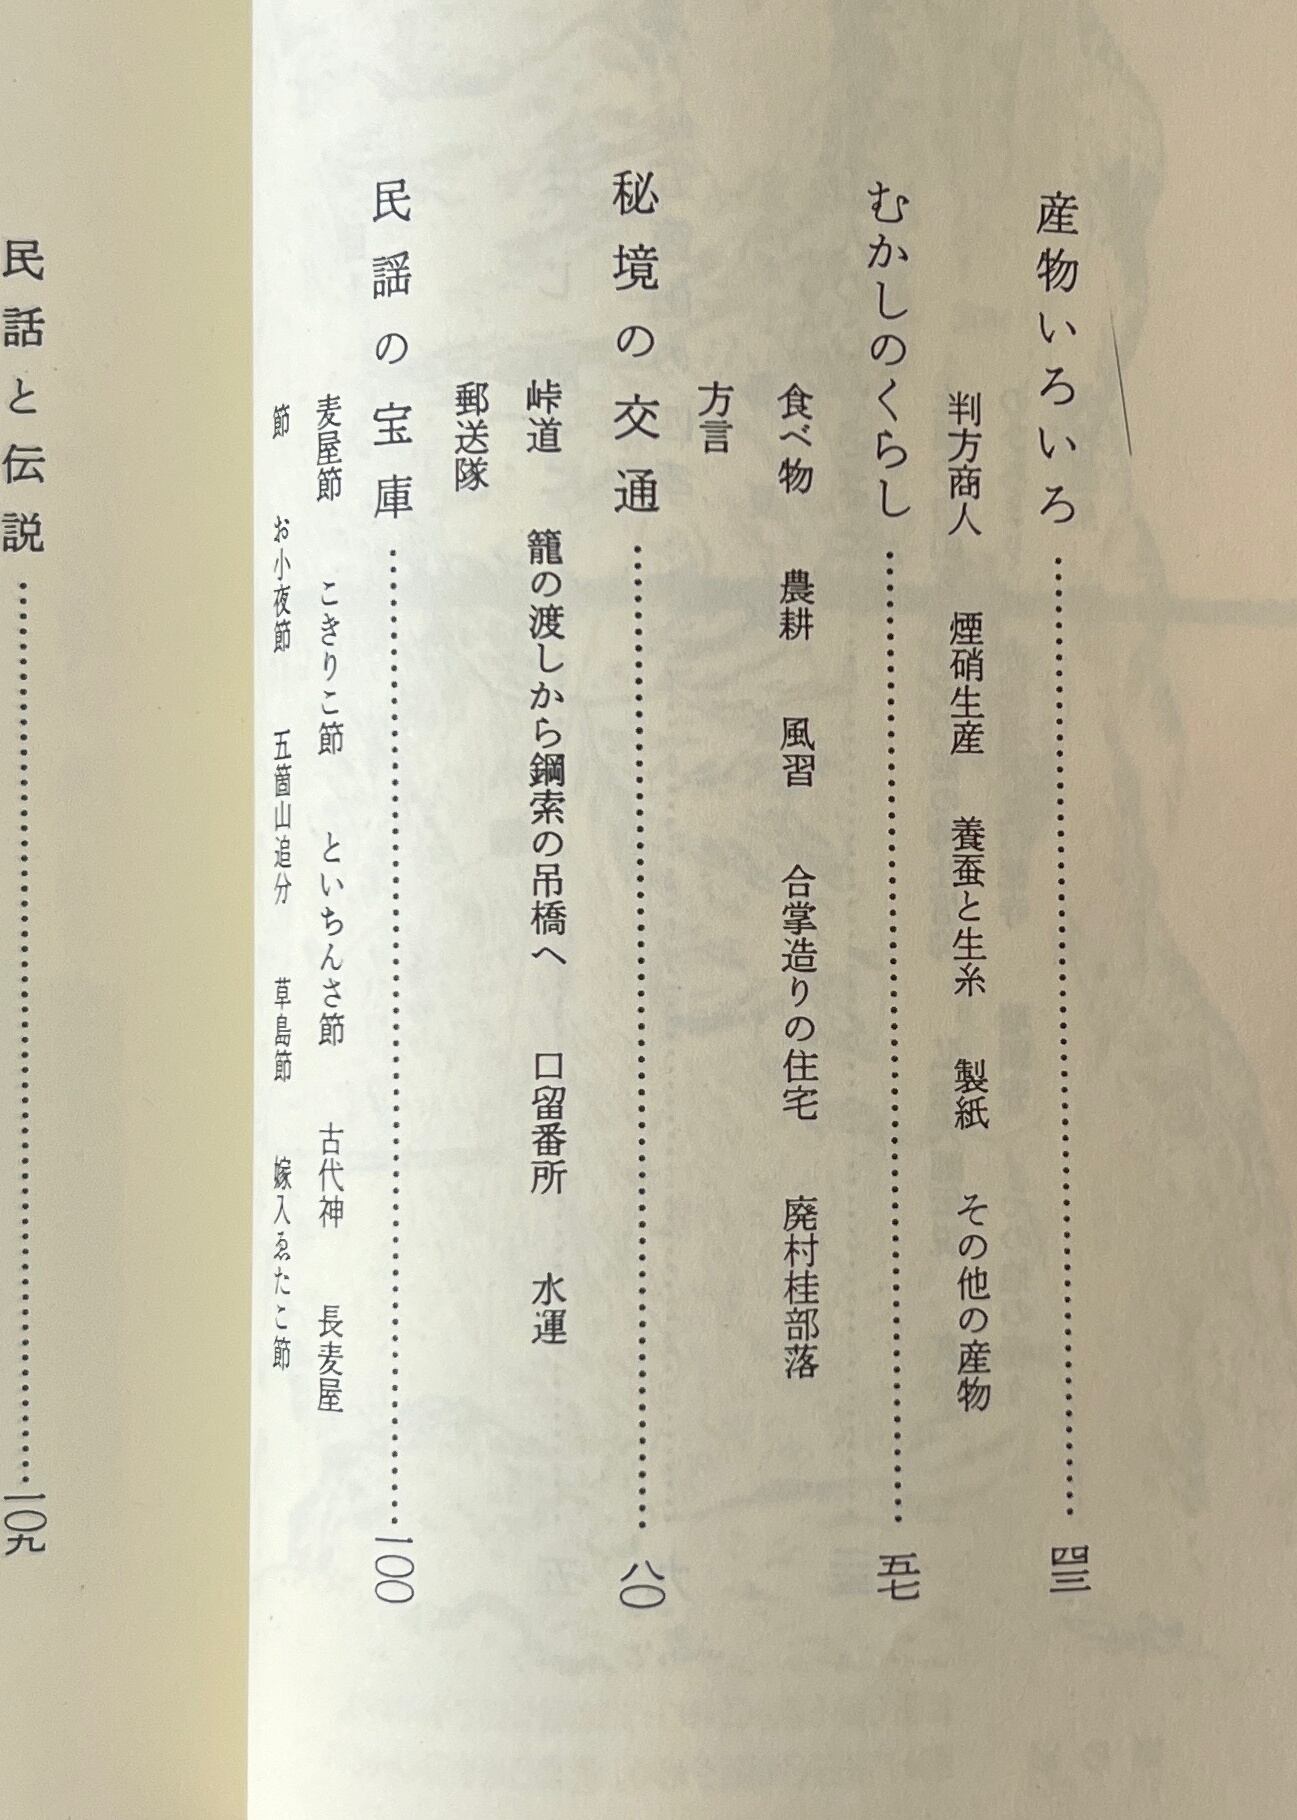 産物いろいろ……………………四三
判方商人　煙硝生産　養蚕と生糸　製紙　その他の産物
むかしのくらし……………………五七
食べ物　農耕　風習　合掌造りの住宅　廃村桂部落
方言
秘境の交通……………………八〇
峠道　籠の渡しから鋼索の吊橋へ　口留番所　水運
郵送隊
民謡の宝庫……………………一〇〇
麦屋節　こきりこ節　といちんさ節　古代神　長麦屋
節　お小夜節　五箇山追分　草島節　嫁入ゑたこ節
民話と伝説……………………一〇九